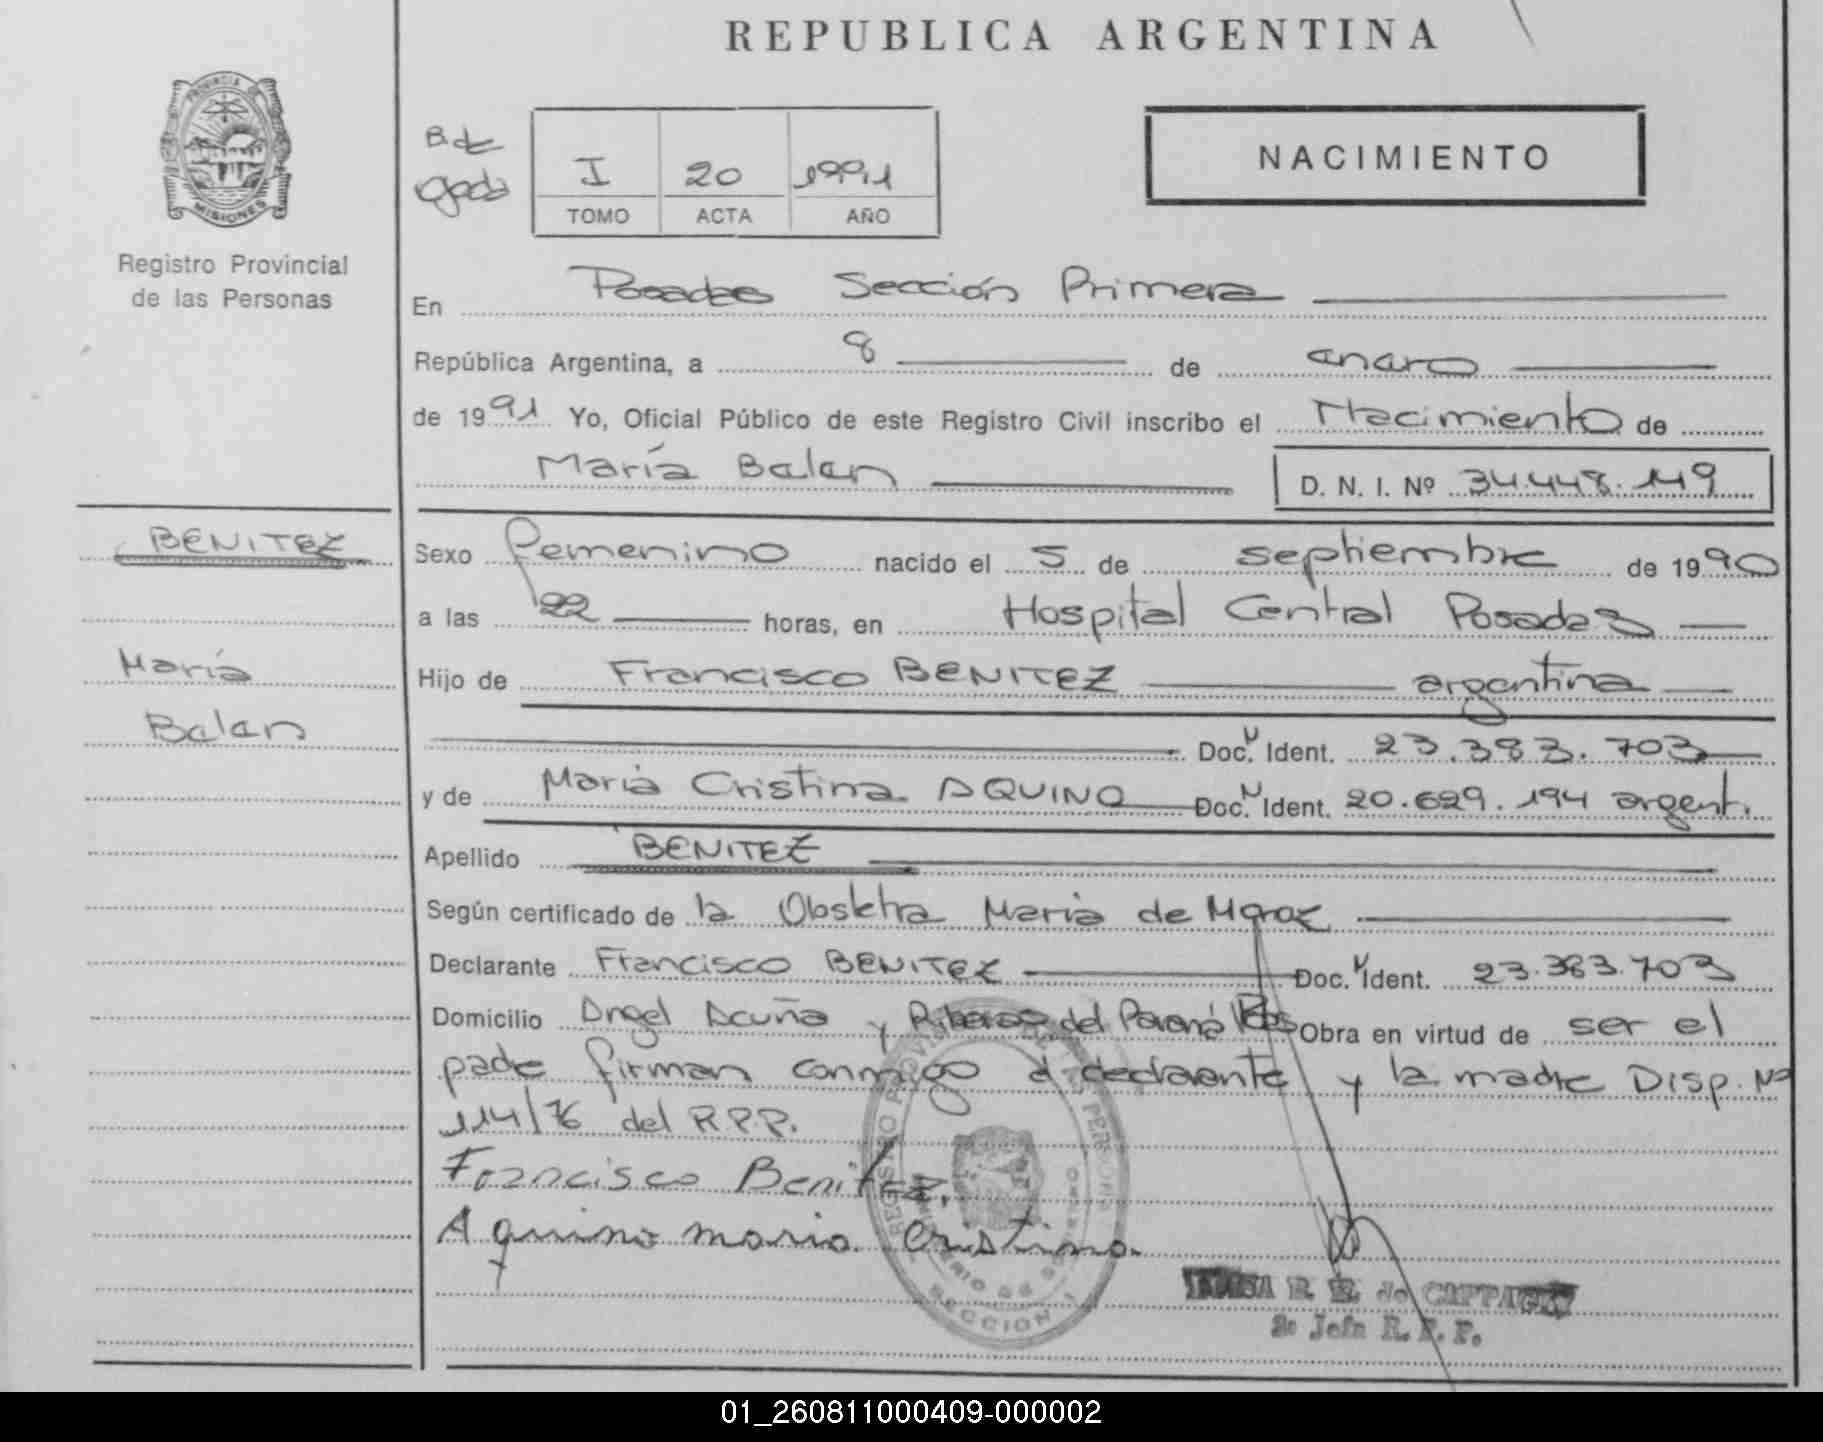 REPUBLICA ARGENTINA
PROVINCIA
MISIONES
Registro Provincial
de las Personas
B. de
I 20 1991
TOMO ACTA AÑO
NACIMIENTO
En Posadas Sección Primera
República Argentina, a 8 de enero
de 1991 Yo, Oficial Público de este Registro Civil inscribo el Nacimiento de
María Belen D. N. I. Nº 34.448.149
BENITEZ
María
Belen
Sexo femenino nacido el 5 de septiembre de 1990
a las 22 horas, en Hospital Central Posadas
Hijo de Francisco BENITEZ argentina
Doc. Ident. 23.383.703
y de Maria Cristina AQUINO Doc. Ident. 20.629.194 argent.
Apellido BENITEZ
Según certificado de la Obstetra Maria de
Declarante Francisco BENITEZ Doc. Ident. 23.383.703
Domicilio Angel Acuña y Riberas del Paraná Pdas Obra en virtud de ser el
padre firman conmigo el declarante y la madre Disp. Nº
114/76 del R.P.P.
Francisco Benitez.
Aquino maria Cristina.
SECCION 1
R. E. de CAPPA
2o Jefe R. P. P.
01_260811000409-000002